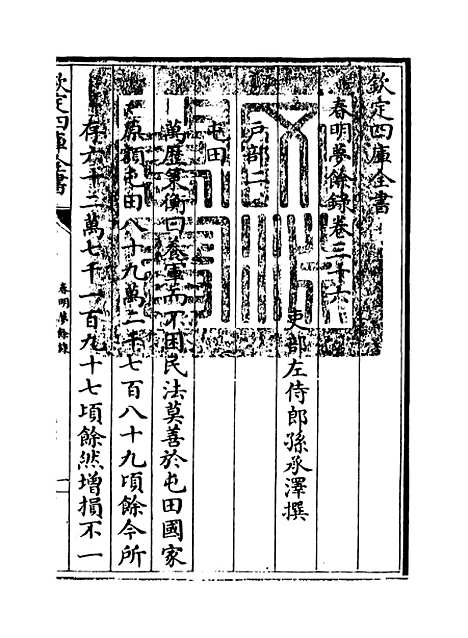 欽定四庫全書
春明夢餘錄卷三十六
吏部左侍郎孫承澤撰
戶部二
屯田
萬歷策衡曰養軍而不困民法莫善於屯田國家
原額屯田八十九萬二千七百八十九頃餘今所
存六十二萬七千一百九十七頃餘然增損不一
欽定四庫全書
春明夢餘錄
一